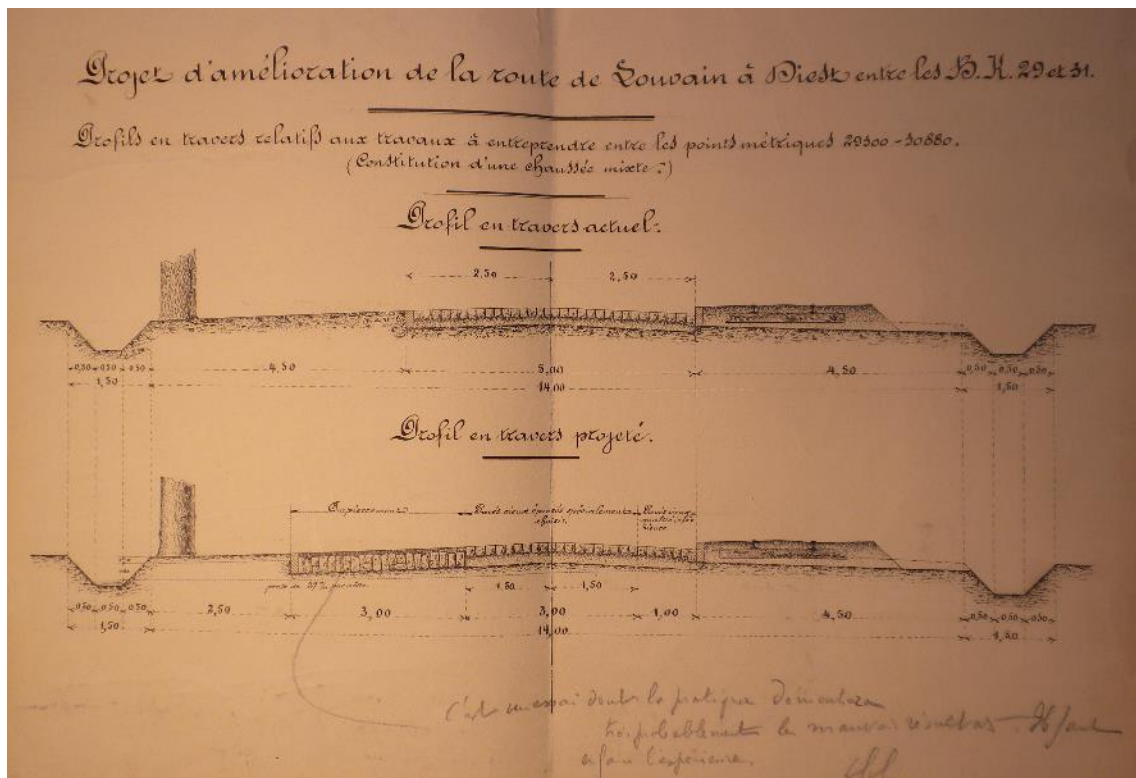 Projet d'amélioration de la route de Louvain à Diest entre les B.K. 29 et 31.
Profils en travers relatifs aux travaux à entreprendre entre les points métriques 29300-30880.
(Constitution d'une chaussée mixte.)
Profil en travers actuel.
2,50 2,50
0,50 0,50 0,50 4,50 5,00 4,50 0,50 0,50 0,50
1,50 14,00 1,50
Profil en travers projeté.
Empierrement Pavés vieux épincés spécialement
choisis.
1,50 1,50
0,50 0,50 0,50 2,50 3,00 3,00 1,00 4,50 0,50 0,50 0,50
1,50 14,00 1,50
C'est un essai dont la pratique démontrera
très probablement le mauvais résultat. Il faut
en faire l'expérience.